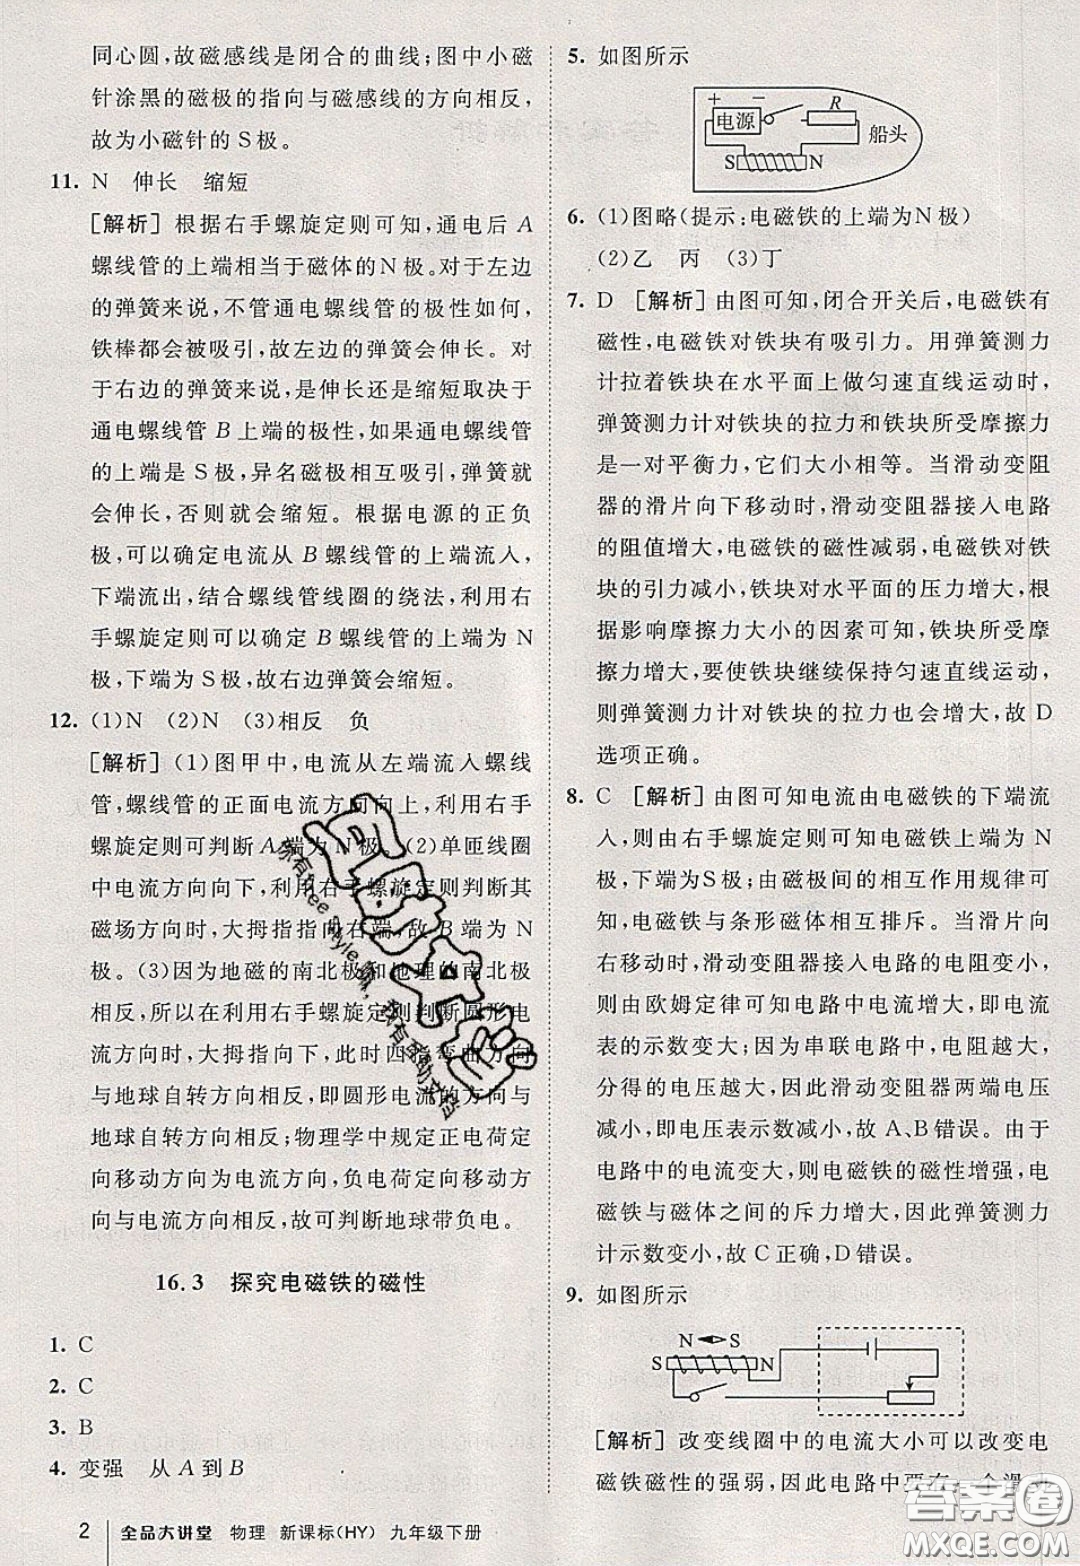 同心圆,故磁感线是闭合的曲线;图中小磁
针涂黑的磁极的指向与磁感线的方向相反,
故为小磁针的S极。
11. N 伸长 缩短
[解析] 根据右手螺旋定则可知,通电后A
螺线管的上端相当于磁体的N极。对于左边
的弹簧来说,不管通电螺线管的极性如何,
铁棒都会被吸引,故左边的弹簧会伸长。对
于右边的弹簧来说,是伸长还是缩短取决于
通电螺线管B上端的极性,如果通电螺线管
的上端是S极,异名磁极相互吸引,弹簧就会
伸长,否则就会缩短。根据电源的正负
极,可以确定电流从B螺线管的上端流入,
下端流出,结合螺线管线圈的绕法,利用右
手螺旋定则可以确定B螺线管的上端为N
极,下端为S极,故右边弹簧会缩短。
12. (1)N (2)N (3)相反 负
[解析] (1)图甲中,电流从左端流入螺线
管,螺线管的正面电流方向向上,利用右手
螺旋定则可判断A端为N极。(2)单匝线圈
中电流方向向下,利用右手螺旋定则判断其
磁场方向时,大拇指指向右端,故B端为N
极。(3)因为地磁的南北极和地理的南北极
相反,所以在利用右手螺旋定则判断圆形电
流方向时,大拇指向下,此时四指弯曲方向
与地球自转方向相反,即圆形电流的方向与
地球自转方向相反;物理学中规定正电荷定
向移动方向为电流方向,负电荷定向移动方
向与电流方向相反,故可判断地球带负电。
16.3 探究电磁铁的磁性
1. C
2. C
3. B
4. 变强 从A到B
5. 如图所示
+ −
电源
R
船头
S
N
6. (1)图略(提示:电磁铁的上端为N极)
(2)乙 丙 (3)丁
7. D [解析] 由图可知,闭合开关后,电磁铁有
磁性,电磁铁对铁块有吸引力。用弹簧测力
计拉着铁块在水平面上做匀速直线运动时,
弹簧测力计对铁块的拉力和铁块所受摩擦力
是一对平衡力,它们大小相等。当滑动变阻
器的滑片向下移动时,滑动变阻器接入电路
的阻值增大,电磁铁的磁性减弱,电磁铁对铁
块的引力减小,铁块对水平面的压力增大,根
据影响摩擦力大小的因素可知,铁块所受的
摩擦力增大,要使铁块继续保持匀速直线运动,
则弹簧测力计对铁块的拉力也会增大,故D
选项正确。
8. C [解析] 由图可知电流由电磁铁的下端流
入,则由右手螺旋定则可知电磁铁上端为N
极,下端为S极;由磁极间的相互作用规律可
知,电磁铁与条形磁体相互排斥。当滑片向
右移动时,滑动变阻器接入电路的电阻变小,
则由欧姆定律可知电路中电流增大,即电流
表的示数变大;因为串联电路中,电阻越大,
分得的电压越大,因此滑动变阻器两端电压
减小,即电压表示数变小,故A、B错误。由于
电路中的电流变大,则电磁铁的磁性增强,电
磁铁与磁体之间的斥力增大,因此弹簧测力
计示数变小,故C正确,D错误。
9. 如图所示
N S
S
N
[解析] 改变线圈中的电流大小可以改变电
磁铁磁性的强弱,因此电路中要有一个滑
2 全品大讲堂 物理 新课标(HY) 九年级下册
你有free style嘛,我有互动文档
答案圈
MXQE.COM